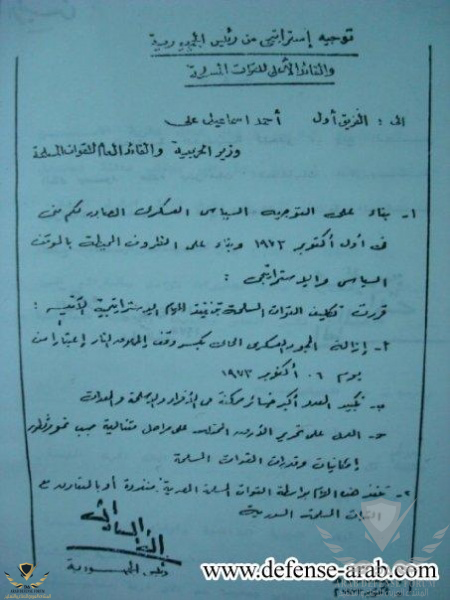 توجيه إستراتيجى من رئيس الجمهورية
والقائد الأعلى للقوات المسلحة
إلى : الفريق أول أحمد اسماعيل على
وزير الحربية والقائد العام للقوات المسلحة
١- بناء على التوجيه السياسى العسكرى الصادر لكم منى
فى أول أكتوبر ١٩٧٣ وبناء على الظروف المحيطة بالموقف
السياسى والاستراتيجى :
قررت تكليف القوات المسلحة بتنفيذ المهام الاستراتيجية الآتية :
أ- إزالة الجمود العسكرى الحالى بكسر وقف إطلاق النار إعتبارا من
يوم ٦ أكتوبر ١٩٧٣
ب- تكبيد العدو أكبر خسائر ممكنة من الأفراد والأسلحة والمعدات
ج- العمل على تحرير الأرض المحتلة على مراحل متتالية حسب نمو وتطور
إمكانيات وقدرات القوات المسلحة
٢- تنفذ هذه المهام بواسطة القوات المسلحة المصرية منفردة أو بالتعاون مع
القوات المسلحة السورية
رئيس الجمهورية
www.defense-arab.com